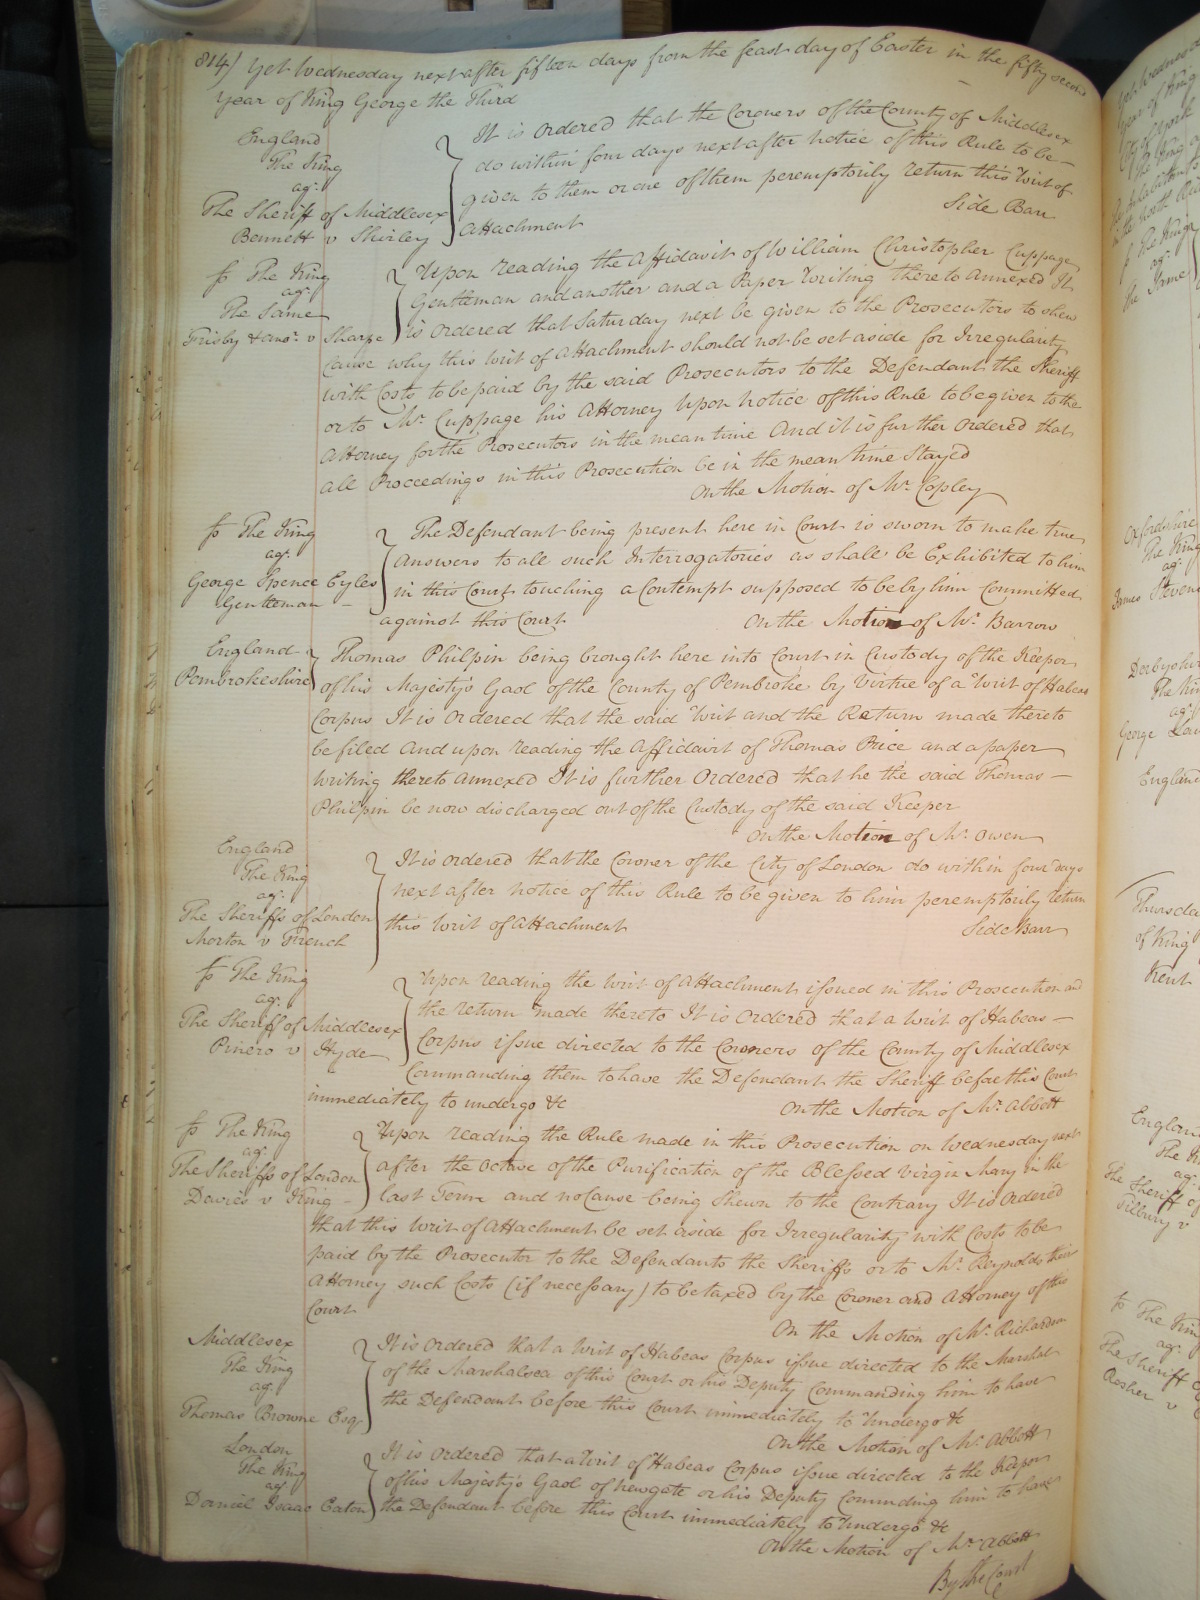 814) Yet Wednesday next after fifteen days from the feast day of Easter in the fifty second
Year of King George the Third
England
The King
agt.
The Sheriff of Middlesex
Bennett v Shirley
It is ordered that the Coroners of the County of Middlesex
do within four days next after notice of this Rule to be
given to them or one of them peremptorily return this Writ of
Attachment
Side Barr
The King
agt.
The Same
Frisby & anor. v Sharpe
Upon reading the Affidavit of William Christopher Cuppage
Gentleman and another and a Paper Writing thereto annexed It
is ordered that Saturday next be given to the Prosecutors to shew
cause why this Writ of Attachment should not be set aside for Irregularity
with Costs to be paid by the said Prosecutors to the Defendant the Sheriff
or to Mr. Cuppage his Attorney Upon notice of this Rule to be given to the
Attorney for the Prosecutors in the mean time And it is further ordered that
all Proceedings in this Prosecution be in the mean time Stayed
On the Motion of Mr. Copley
The King
agt.
George Spence Eyles
Gentleman
The Defendant being present here in Court is sworn to make true
answers to all such Interrogatories as shall be Exhibited to him
in this Court touching a Contempt supposed to be by him Committed
against this Court
On the Motion of Mr. Barrow
England
Pembrokeshire
Thomas Philpin being brought here into Court in Custody of the Keeper
of his Majesty's Gaol of the County of Pembroke by Virtue of a Writ of Habeas
Corpus It is ordered that the said Writ and the Return made thereto
be filed and upon reading the Affidavit of Thomas Price and a paper
Writing thereto annexed It is further ordered that he the said Thomas
Philpin be now discharged out of the Custody of the said Keeper
On the Motion of Mr. Owen
England
The King
agt.
The Sheriffs of London
Morton v French
It is ordered that the Coroner of the City of London do within four days
next after notice of this Rule to be given to him peremptorily return
this Writ of Attachment
Side Barr
The King
agt.
The Sheriff of Middlesex
Pinero v Hyde
Upon reading the Writ of Attachment issued in this Prosecution and
the return made thereto It is ordered that a Writ of Habeas
Corpus issue directed to the Coroners of the County of Middlesex
Commanding them to have the Defendant the Sheriff before this Court
immediately to undergo &c
On the Motion of Mr. Abbott
The King
agt.
The Sheriffs of London
Davies v King
Upon reading the Rule made in this Prosecution on Wednesday next
after the Octave of the Purification of the Blessed Virgin Mary in the
last Term and no Cause being Shewn to the Contrary It is ordered
that this Writ of Attachment be set aside for Irregularity with Costs to be
paid by the Prosecutor to the Defendants the Sheriffs or to Mr. Reynolds their
Attorney such Costs (if necessary) to be taxed by the Coroner and Attorney of this
Court
On the Motion of Mr. Richardson
Middlesex
The King
agt.
Thomas Browne Esqr
It is ordered that a Writ of Habeas Corpus issue directed to the Marshal
of the Marshalsea of this Court or his Deputy Commanding him to have
the Defendant before this Court immediately to Undergo &c
On the Motion of Mr. Abbott
London
The King
agt
Daniel Isaac Eaton
It is ordered that a Writ of Habeas Corpus issue directed to the Keeper
of his Majesty's Gaol of Newgate or his Deputy Commanding him to have
the Defendant before this Court immediately to Undergo &c
On the Motion of Mr. Abbott
By the Court
Oxfordshire
The King
agt.
James Stevens
The King
agt.
George
England
of King
Kent